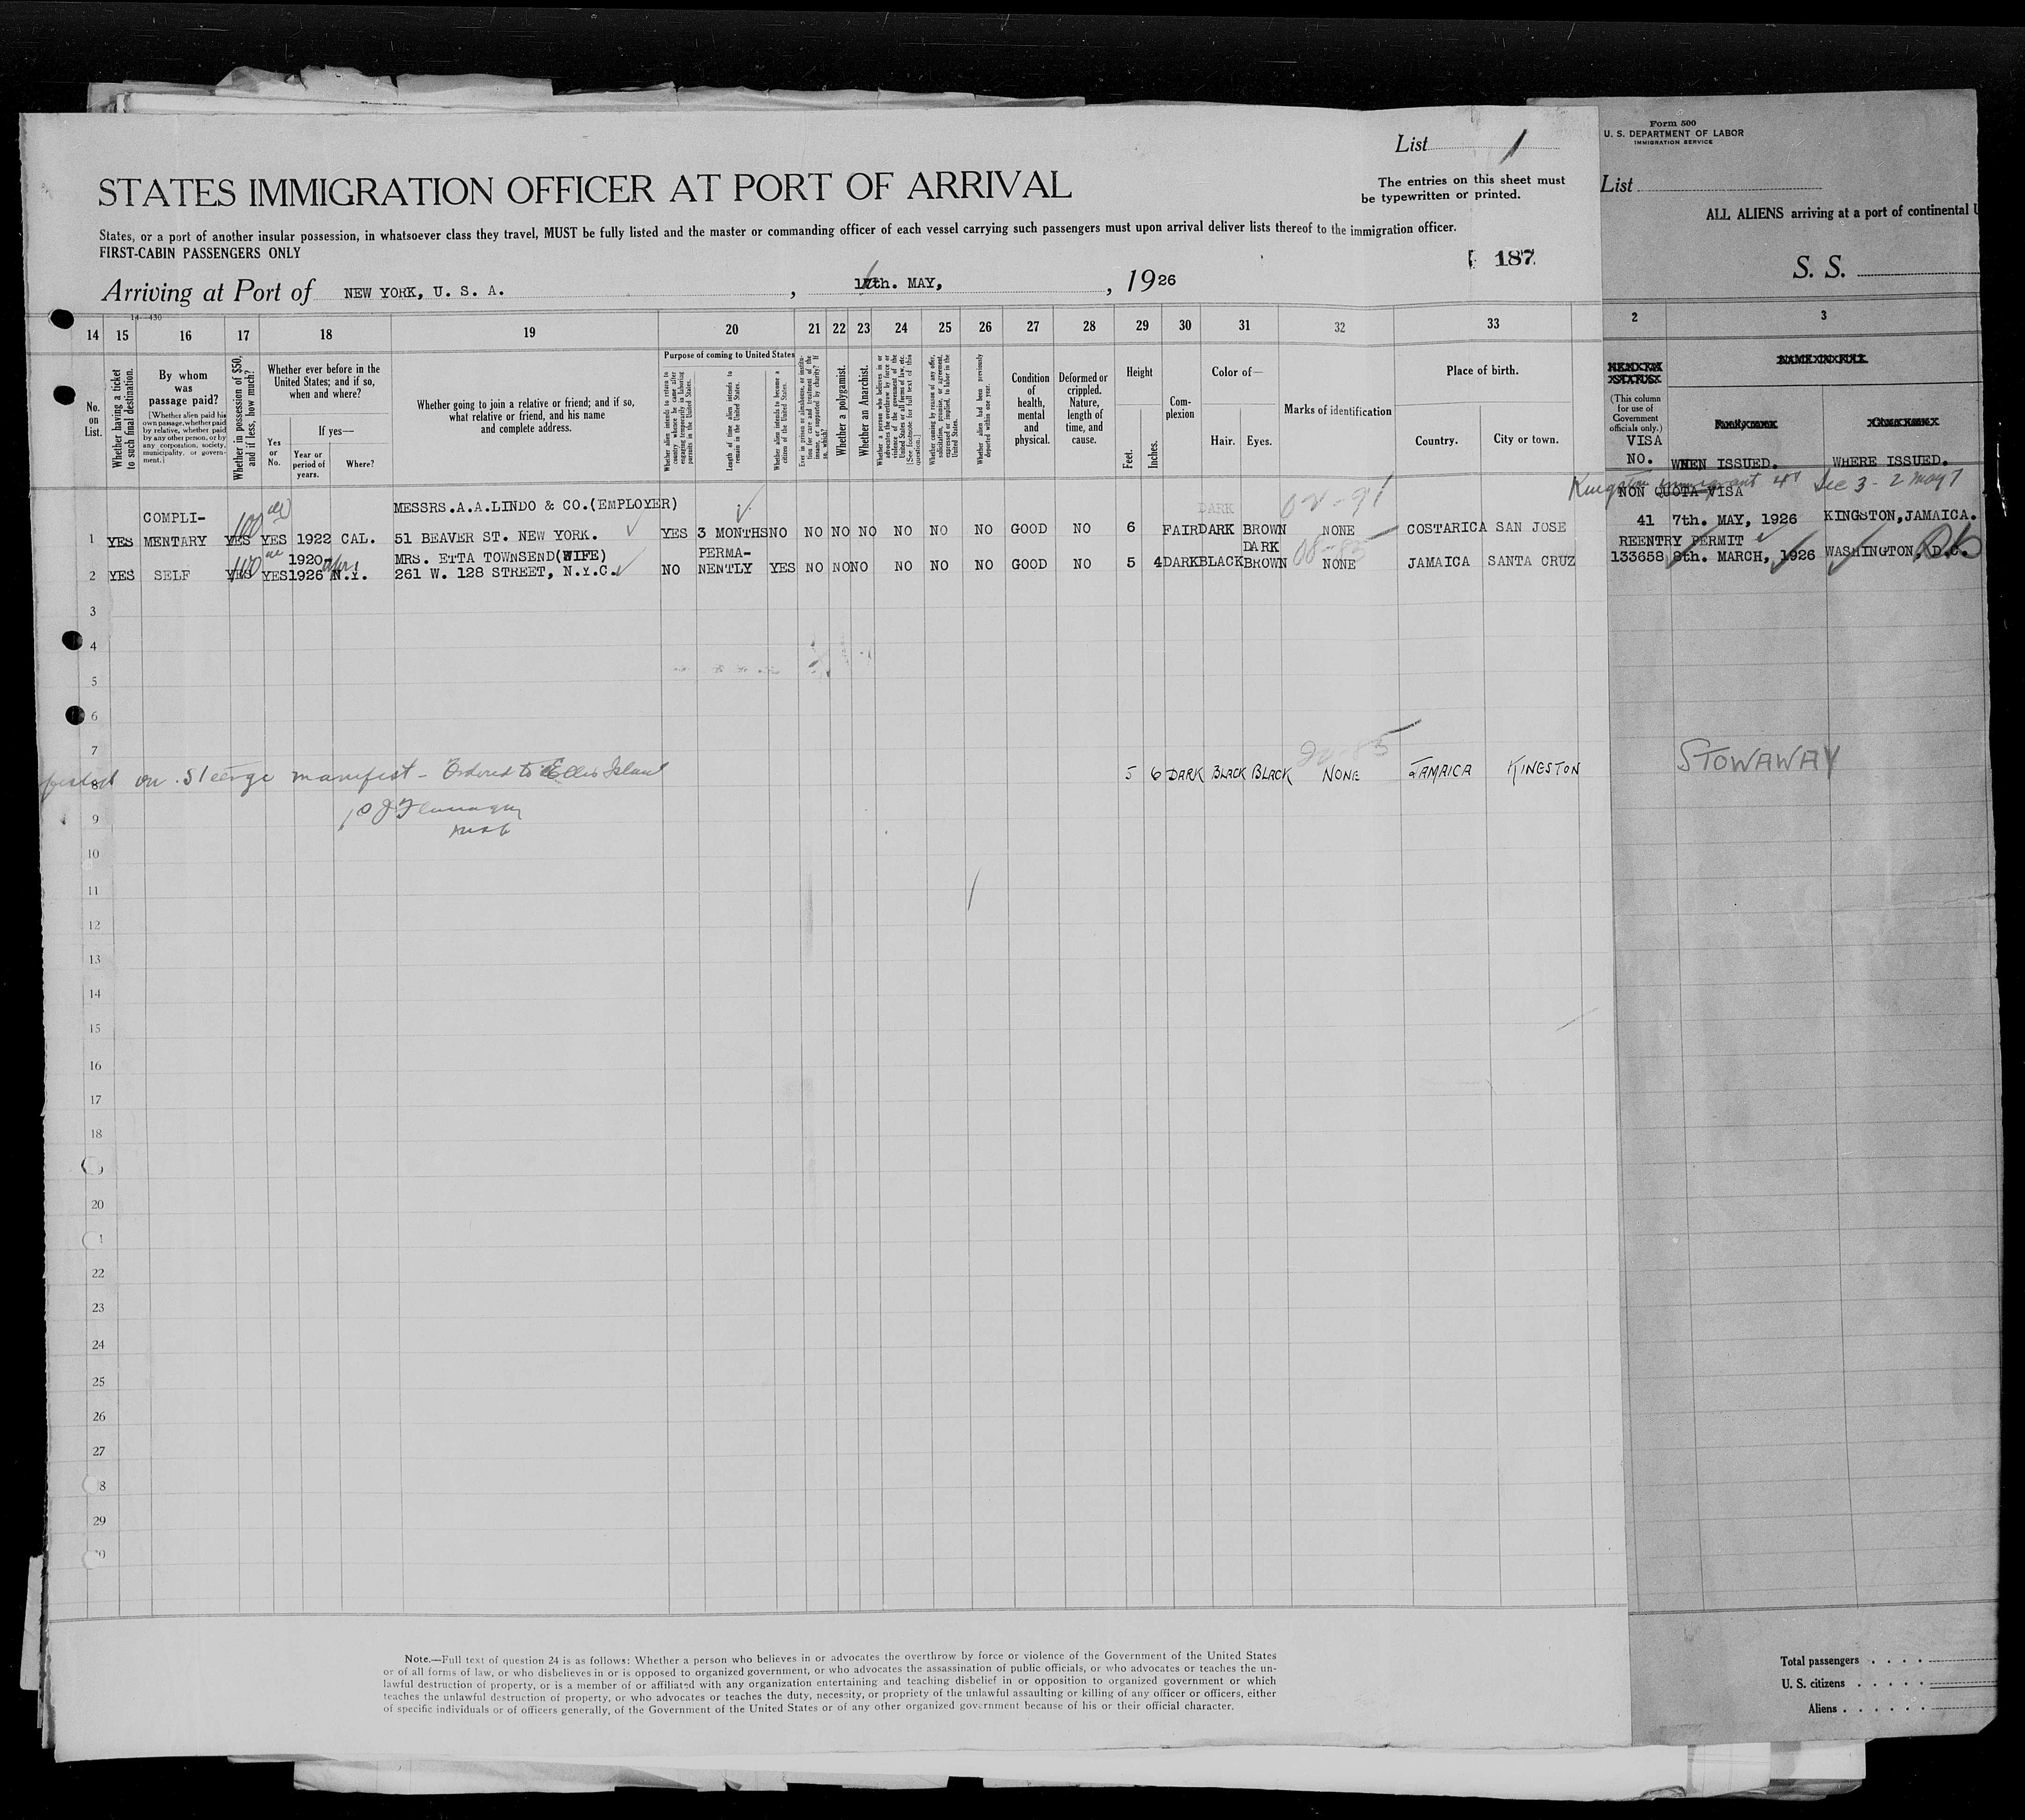 List 1
STATES IMMIGRATION OFFICER AT PORT OF ARRIVAL
The entries on this sheet must
be typewritten or printed.
States, or a port of another insular possession, in whatsoever class they travel, MUST be fully listed and the master or commanding officer of each vessel carrying such passengers must upon arrival deliver lists thereof to the immigration officer.
FIRST-CABIN PASSENGERS ONLY
187
Arriving at Port of NEW YORK, U. S. A. , th. MAY, , 1926
14—430
14 15 16 17 18 19 20 21 22 23 24 25 26 27 28 29 30 31 32 33
No. on List.
Whether having a ticket to such final destination.
By whom was passage paid?
[Whether alien paid his own passage, whether paid by relative, whether paid by any other person, or by any corporation, society, municipality, or government.]
Whether in possession of $50, and if less, how much?
Whether ever before in the United States; and if so, when and where?
If yes—
Yes or No.
Year or period of years.
Where?
Whether going to join a relative or friend; and if so, what relative or friend, and his name and complete address.
Purpose of coming to United States
Whether alien intends to return to country whence he came after engaging temporarily in laboring pursuits in the United States.
Length of time alien intends to remain in the United States.
Whether alien intends to become a citizen of the United States.
Ever in prison or almshouse, or institution for care and treatment of the insane, or supported by charity? If so, which?
Whether a polygamist.
Whether an Anarchist.
Whether a person who believes in or advocates the overthrow by force or violence of the Government of the United States or all forms of law, etc. [See footnote for full text of this question.]
Whether coming by reason of any offer, solicitation, promise, or agreement, expressed or implied, to labor in the United States.
Whether alien had been previously deported within one year.
Condition of health, mental and physical.
Deformed or crippled. Nature, length of time, and cause.
Height
Feet. Inches.
Complexion
Color of—
Hair. Eyes.
Marks of identification
Place of birth.
Country. City or town.
COMPLI- MESSRS.A.A.LINDO & CO.(EMPLOYER) DARK 02-91
1 YES MENTARY YES 100 YES 1922 CAL. 51 BEAVER ST. NEW YORK. YES 3 MONTHS NO NO NO NO NO NO NO GOOD NO 6 FAIR DARK BROWN NONE COSTARICA SAN JOSE
1920 MRS. ETTA TOWNSEND(WIFE) PERMA- DARK 08-85
2 YES SELF YES 100 YES 1926 N.Y. 261 W. 128 STREET, N.Y.C. NO NENTLY YES NO NO NO NO NO NO GOOD NO 5 4 DARK BLACK BROWN NONE JAMAICA SANTA CRUZ
3
4
5
6
7
8 on Steerge manifest - Ordered to Ellis Island 5 6 DARK BLACK BLACK NONE JAMAICA KINGSTON
9
10
11
12
13
14
15
16
17
18
20
1
22
23
24
25
26
27
8
29
Note.—Full text of question 24 is as follows: Whether a person who believes in or advocates the overthrow by force or violence of the Government of the United States
or of all forms of law, or who disbelieves in or is opposed to organized government, or who advocates the assassination of public officials, or who advocates or teaches the un-
lawful destruction of property, or is a member of or affiliated with any organization entertaining and teaching disbelief in or opposition to organized government or which
teaches the unlawful destruction of property, or who advocates or teaches the duty, necessity, or propriety of the unlawful assaulting or killing of any officer or officers, either
of specific individuals or of officers generally, of the Government of the United States or of any other organized government because of his or their official character.
Form 500
U. S. DEPARTMENT OF LABOR
IMMIGRATION SERVICE
List
ALL ALIENS arriving at a port of continental U
S. S.
2 3
(This column for use of Government officials only.)
VISA NO. WHEN ISSUED. WHERE ISSUED.
Kingston immigrant Sec 3 - 2 May 7
NON QUOTA VISA
41 7th. MAY, 1926 KINGSTON, JAMAICA.
REENTRY PERMIT
133658 8th. MARCH, 1926 WASHINGTON, D.C.
STOWAWAY
Total passengers . . . .
U. S. citizens . . . . .
Aliens . . . . . .